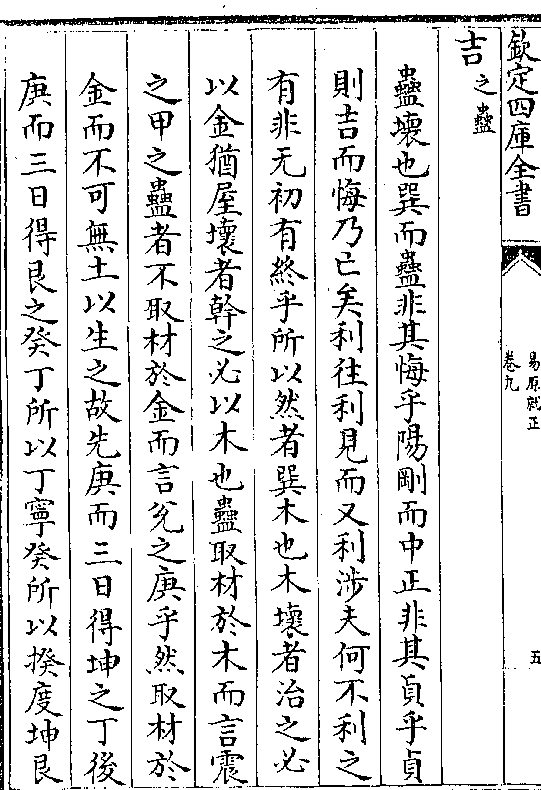 欽定四庫全書
易原就正
卷九
五
吉之蠱
蠱壞也巽而蠱非其悔乎陽剛而中正非其貞乎貞
則吉而悔乃亡矣利往利見而又利涉夫何不利之
有非无初有終乎所以然者巽木也木壞者治之必
以金猶屋壞者幹之必以木也蠱取材於木而言震
之甲之蠱者不取材於金而言兌之庚乎然取材於
金而不可無土以生之故先庚而三日得坤之丁後
庚而三日得艮之癸丁所以丁寧癸所以揆度坤艮